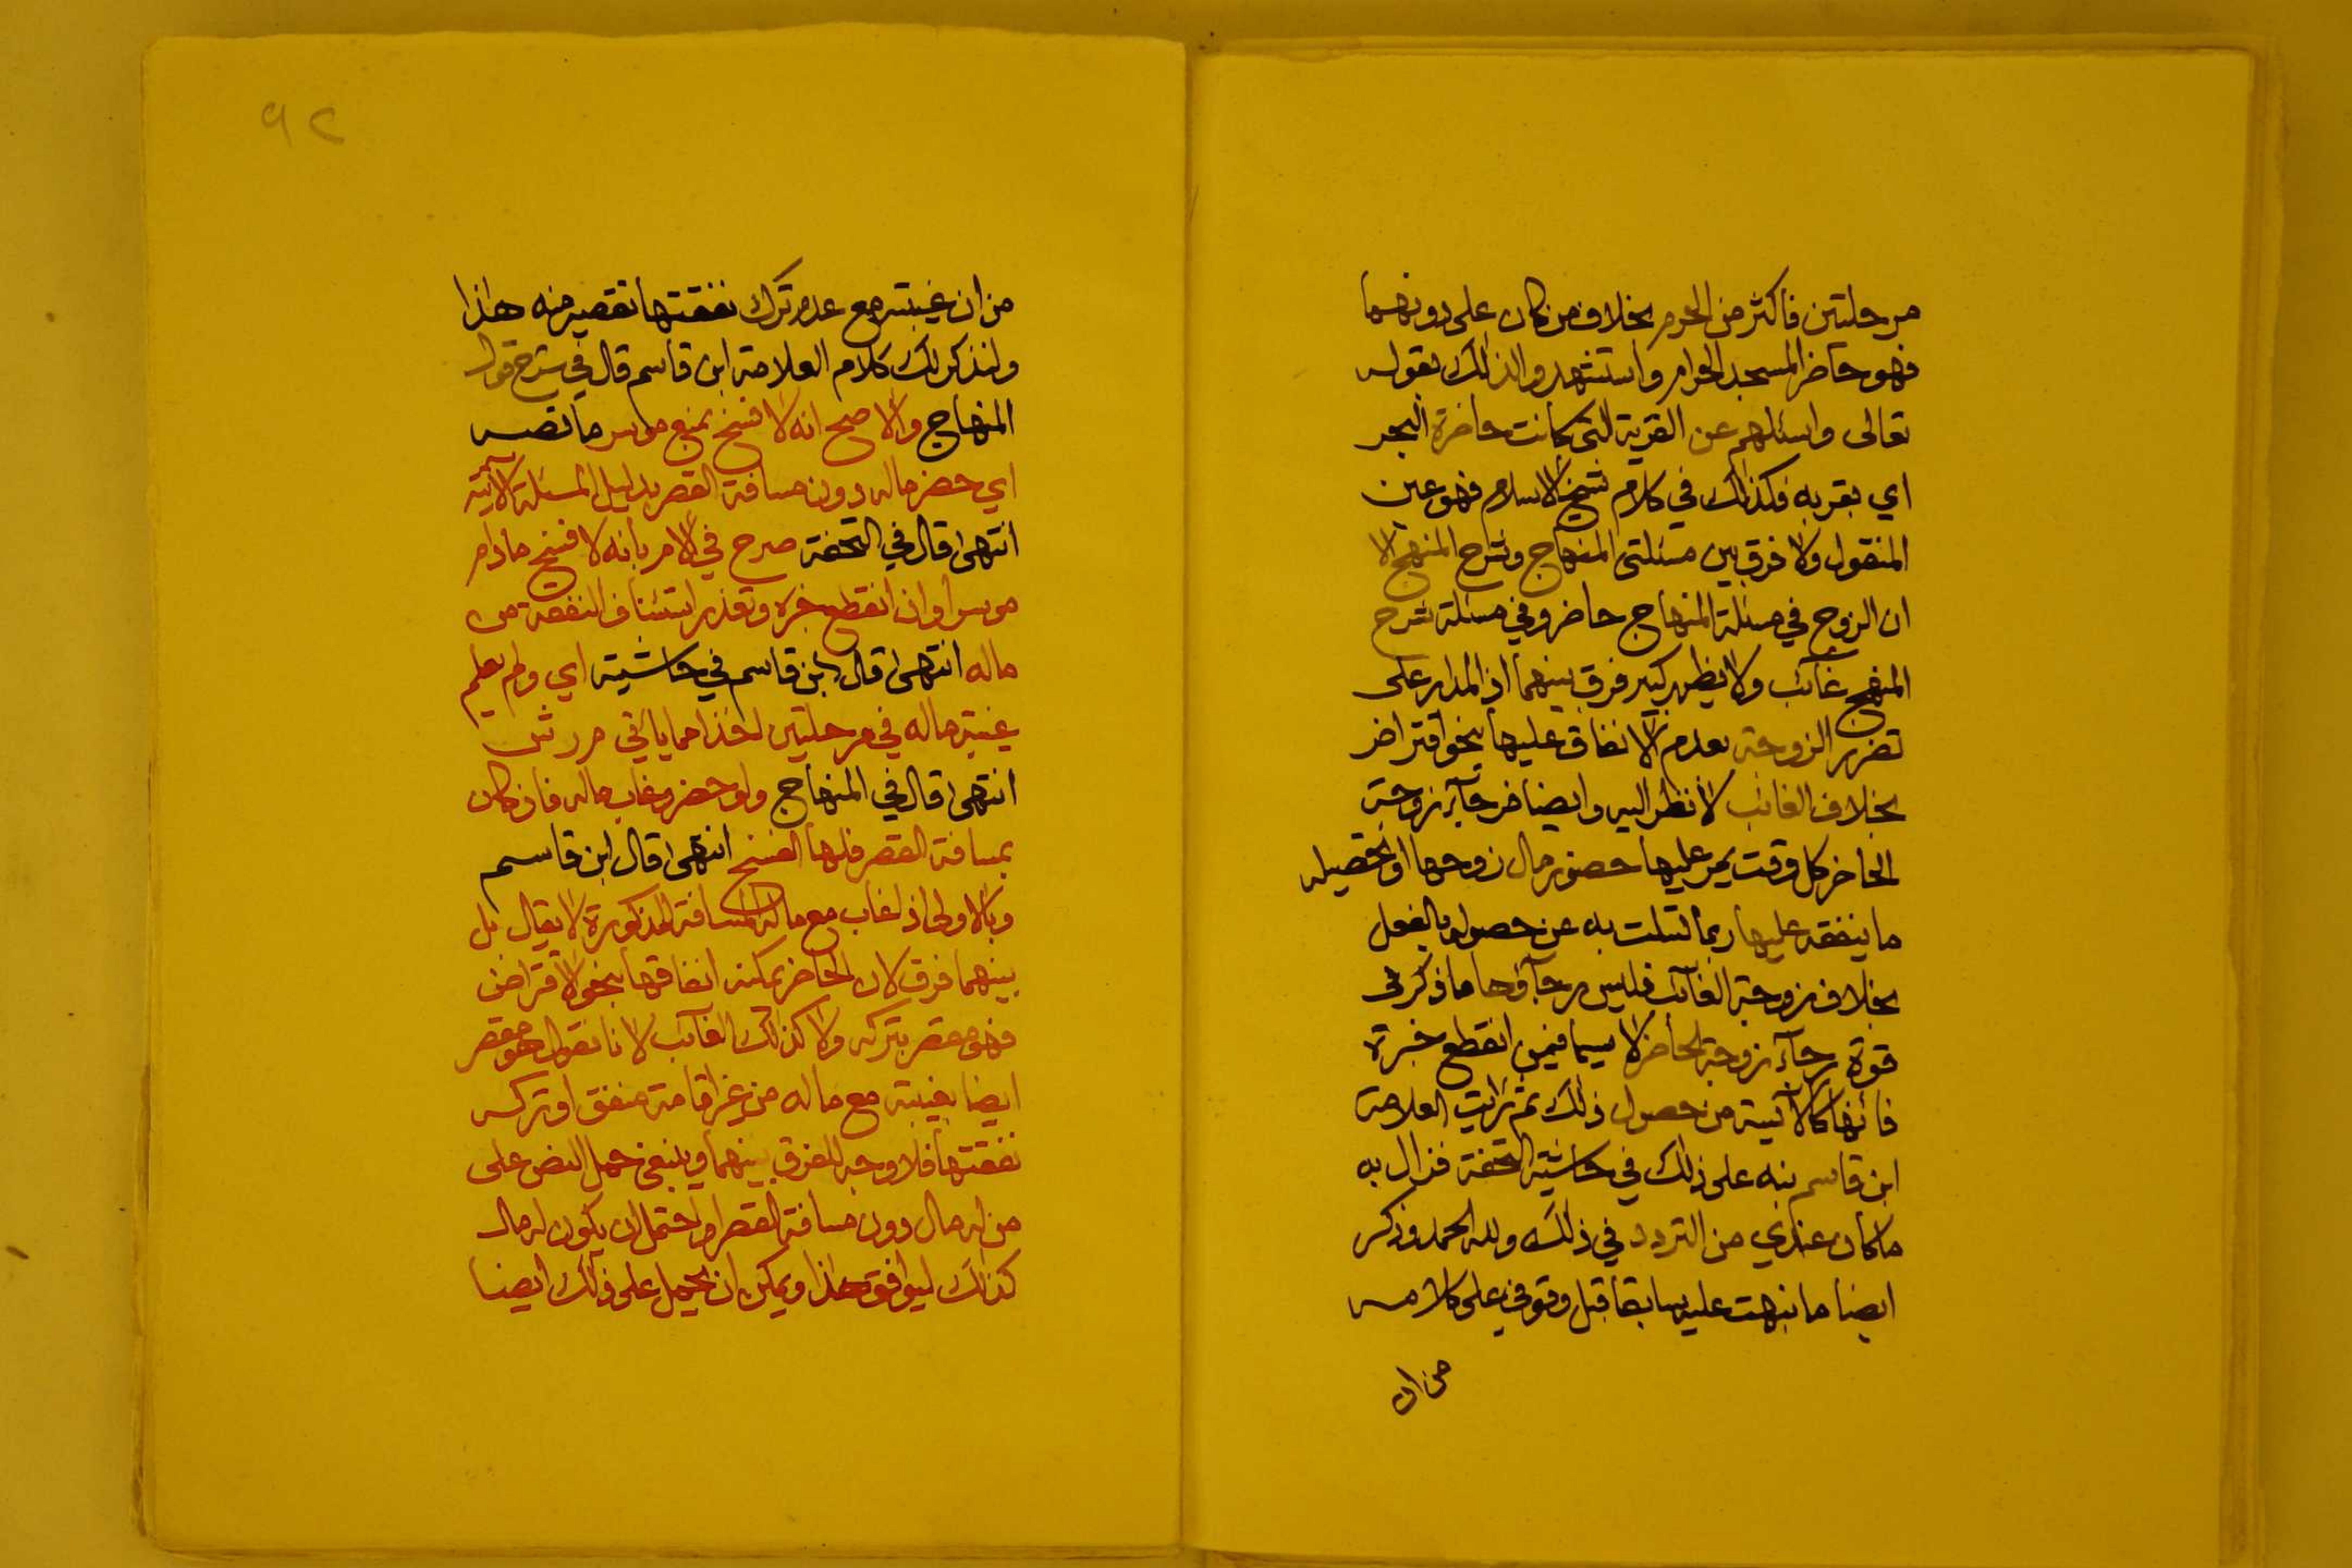 مرحلتين فاكثر من الحرم بخلاف من كان على دونهما
فهو حاضر المسجد الحرام واستشهدوا لذالك بقوله
تعالى واسئلهم عن القرية التي كانت حاضرة البحر
اي بقربه فكذالك في كلام شيخ الاسلام فهو عين
المنقول ولا فرق بين مسئلتى المنهاج وشرح المنهج الا
ان الزوج في مسئلة المنهاج حاضر وفي مسئلة شرح
المنهج غائب ولا يظهر كبير فرق بينهما اذ المدار على
تضرر الزوجة بعدم الانفاق عليها بنحو اقتراض
بخلاف الغائب لا نظر اليه وايضا فرجآء زوجة
الحاضر كل وقت يمر عليها حضور مال زوجها او تحصيله
ما ينفقه عليها ربما تسلت به عن حصوله بالفعل
بخلاف زوجة الغآئب فليس رجآؤها ما ذكر في
قوة رجآء زوجة الحاضر لا سيما فيمن انقطع خبره
فانها كالآئيسة من حصول ذلك ثم رايت العلامة
ابن قاسم نبه على ذلك في حاشية التحفة فزال به
ما كان عندي من التردد في ذلك ولله الحمد وذكر
ايضا ما نبهت عليه سابقا قبل وقوفي على كلامه
من ان
٩٢
من ان غيبته مع عدم ترك نفقتها تقصير منه هاذا
ولنذكر لك كلام العلامة ابن قاسم قال في شرح قول
المنهاج والاصح انه لا فسخ بمنع موسر ما نصه
اي حضر ماله دون مسافة القصر بدليل المسئلة الآتية
انتهى قال في التحفة صرح في الام بانه لا فسخ مادام
موسرا وان انقطع خبره وتعذر استئناف النفقة من
ماله انتهى قال ابن قاسم في حاشيته اي ولم يعلم
غيبة ماله في مرحلتين اخذا مما ياتي م ر ش
انتهى قال في المنهاج ولو حضر وغاب ماله فان كان
بمسافة القصر فلها الفسخ انتهى قال ابن قاسم
وبالاولى اذ اغاب مع ماله المسافة المذكورة لا يقال بل
بينهما فرق لان الحاضر يمكنه انفاقها بنحو الاقتراض
فهو مقصر بتركه ولا كذالك الغآئب لانا نقول هو مقصر
ايضا بغيبته مع ماله من غير اقامة منفق او تركه
نفقتها فلا وجه للفرق بينهما وينبغي حمل النص على
من له مال دون مسافة القصر او احتمل ان يكون له مال
كذالك ليوافق هذا ويمكن ان يحمل على ذلك ايضا